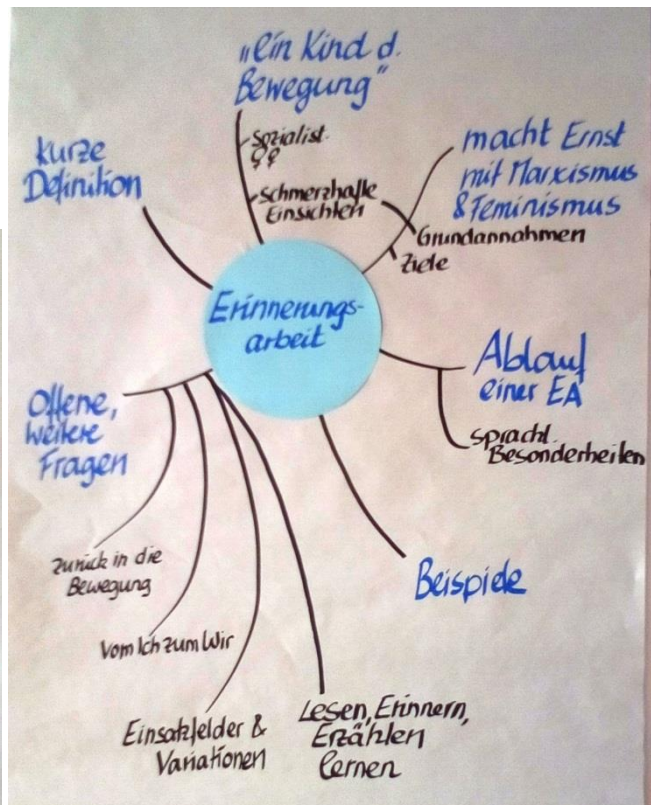 „ein Kind d.
Bewegung“
Sozialist.
♀♀
Schmerzhafte
Einsichten
macht Ernst
mit Marxismus
& Feminismus
Grundannahmen
Ziele
kurze
Definition
Erinnerungs-
arbeit
Ablauf
einer EA
sprachl.
Besonderheiten
Offene,
weitere
Fragen
Beispiele
zurück in die
Bewegung
Vom Ich zum Wir
Einsatzfelder &
Variationen
Lesen, Erinnern,
Erzählen
lernen